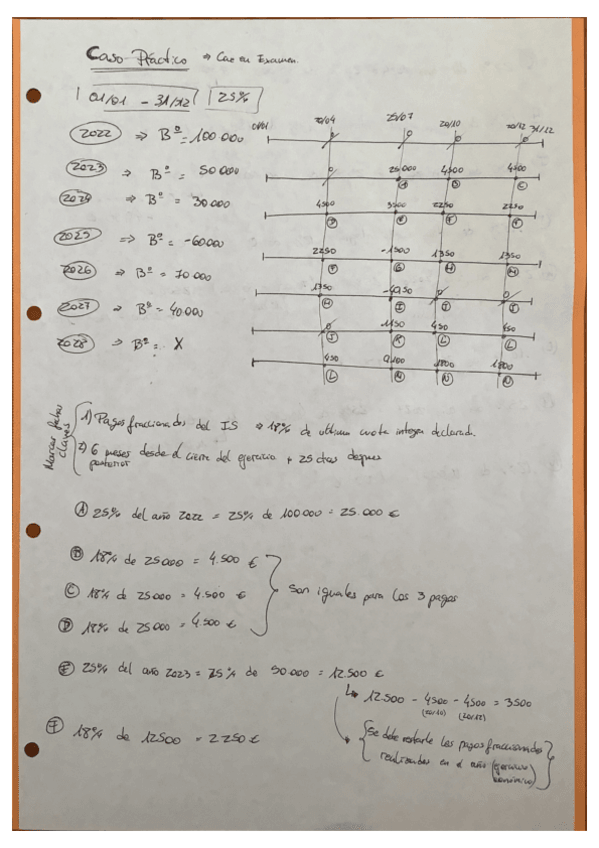 Caso Práctico → Cae en Examen.
01/01 - 31/12 | 25%
2022 ⇒ Bº = 100 000
2023 ⇒ Bº = 50 000
2024 ⇒ Bº = 30 000
2025 ⇒ Bº = -60000
2026 ⇒ Bº = 70 000
2027 ⇒ Bº = 40.000
2028 ⇒ Bº = X
01/01 20/04 25/07 20/10 20/12 31/12
25000 4500 4500
A B C
4500 3500 2250 2250
D E F F
2250 -1500 1350 1350
F G H H
1350 -4950
H I J J
-1150 450 450
J K L L
450 9100 1800 1800
L N N N
Marcar fechas claves
1) Pagos fraccionados del IS → 18% de ultima cuota integra declarada.
2) 6 meses desde el cierre del ejercicio + 25 dias despues
posterior
A 25% del año 2022 = 25% de 100000 = 25.000 €
B 18% de 25000 = 4.500 €
C 18% de 25000 = 4.500 €
D 18% de 25000 = 4.500 €
Son iguales para los 3 pagos
E 25% del año 2023 = 25% de 50000 = 12.500 €
↳ 12500 - 4500 - 4500 = 3500
(20/10) (20/12)
F 18% de 12500 = 2250 €
Se debe restarle los pagos fraccionados
realizados en el año (ejercicio
económico)